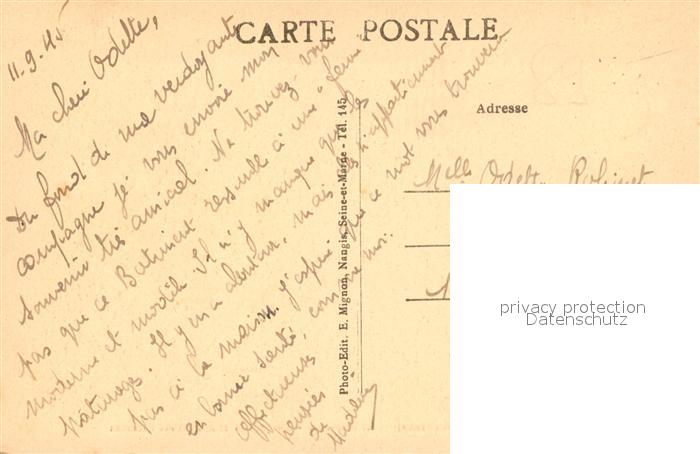 CARTE POSTALE
11.9.45
Ma chère Odette,
Du fond de ma verdoyante
campagne je vous envoie mon
souvenir très amical. Ne trouvez vous
pas que ce Batiment ressemble à une "ferme
moderne et modèle Il n'y manque que les
pâturages. Il y en a alentour, mais ils n'appartiennent
pas à la maison. J'espère que ce mot vous trouvera
en bonne santé, comme moi.
affectueuses
pensées
de
Madeleine
Adresse
Melle Odette Robinet
Photo-Edit. E. Mignon, Nangis, Seine-et-Marne - Tél. 145
privacy protection
Datenschutz